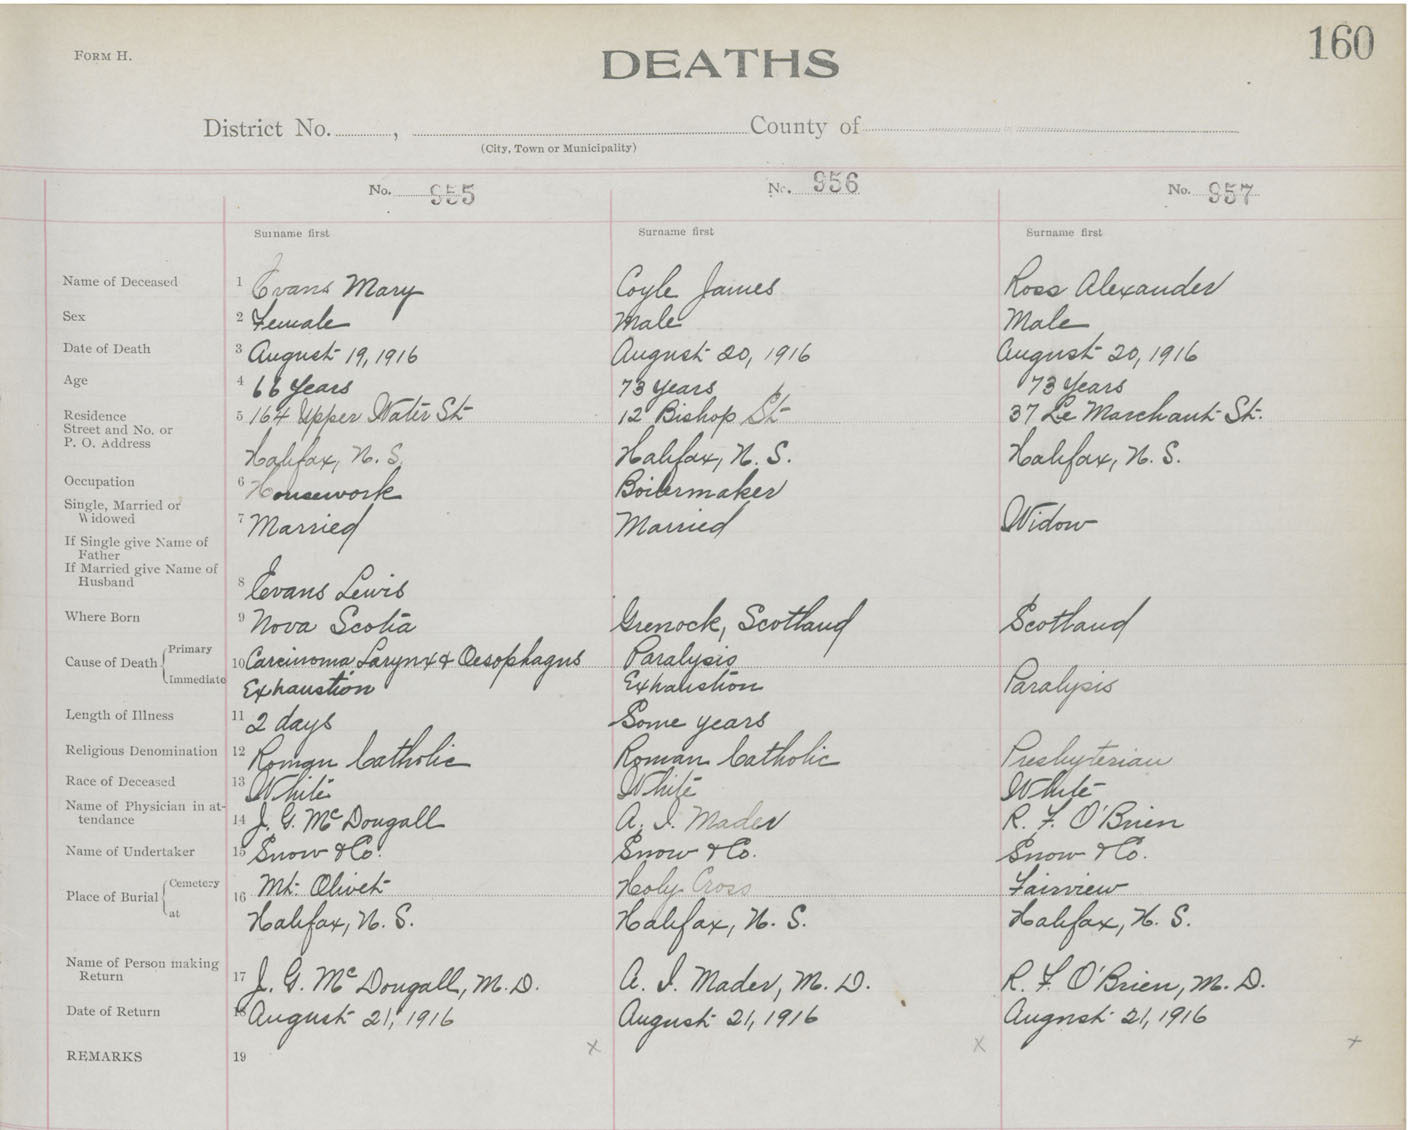 FORM H.
DEATHS
160
District No. , County of
(City, Town or Municipality)
No. 955 No. 956 No. 957
Surname first Surname first Surname first
Name of Deceased 1 Evans Mary Coyle James Ross Alexander
Sex 2 Female Male Male
Date of Death 3 August 19, 1916 August 20, 1916 August 20, 1916
Age 4 66 Years 73 Years 73 Years
Residence
Street and No. or 5 164 Upper Water St 12 Bishop St 37 Le Marchant St.
P. O. Address Halifax, N. S. Halifax, N. S. Halifax, N. S.
Occupation 6 Housework Boilermaker
Single, Married or
Widowed 7 Married Married Widow
If Single give Name of
Father
If Married give Name of
Husband 8 Evans Lewis
Where Born 9 Nova Scotia Grenock, Scotland Scotland
Cause of Death Primary 10 Carcinoma Larynx & Oesophagus Paralysis
Immediate Exhaustion Exhaustion Paralysis
Length of Illness 11 2 days Some years
Religious Denomination 12 Roman Catholic Roman Catholic Presbyterian
Race of Deceased 13 White White White
Name of Physician in at-
tendance 14 J. G. McDougall A. I. Mader R. F. O'Brien
Name of Undertaker 15 Snow & Co. Snow & Co. Snow & Co.
Place of Burial Cemetery 16 Mt. Olivet Holy Cross Fairview
at Halifax, N. S. Halifax, N. S. Halifax, N. S.
Name of Person making
Return 17 J. G. McDougall, M.D. A. I. Mader, M. D. R. F. O'Brien, M. D.
Date of Return 18 August 21, 1916 August 21, 1916 August 21, 1916
REMARKS 19 x x x